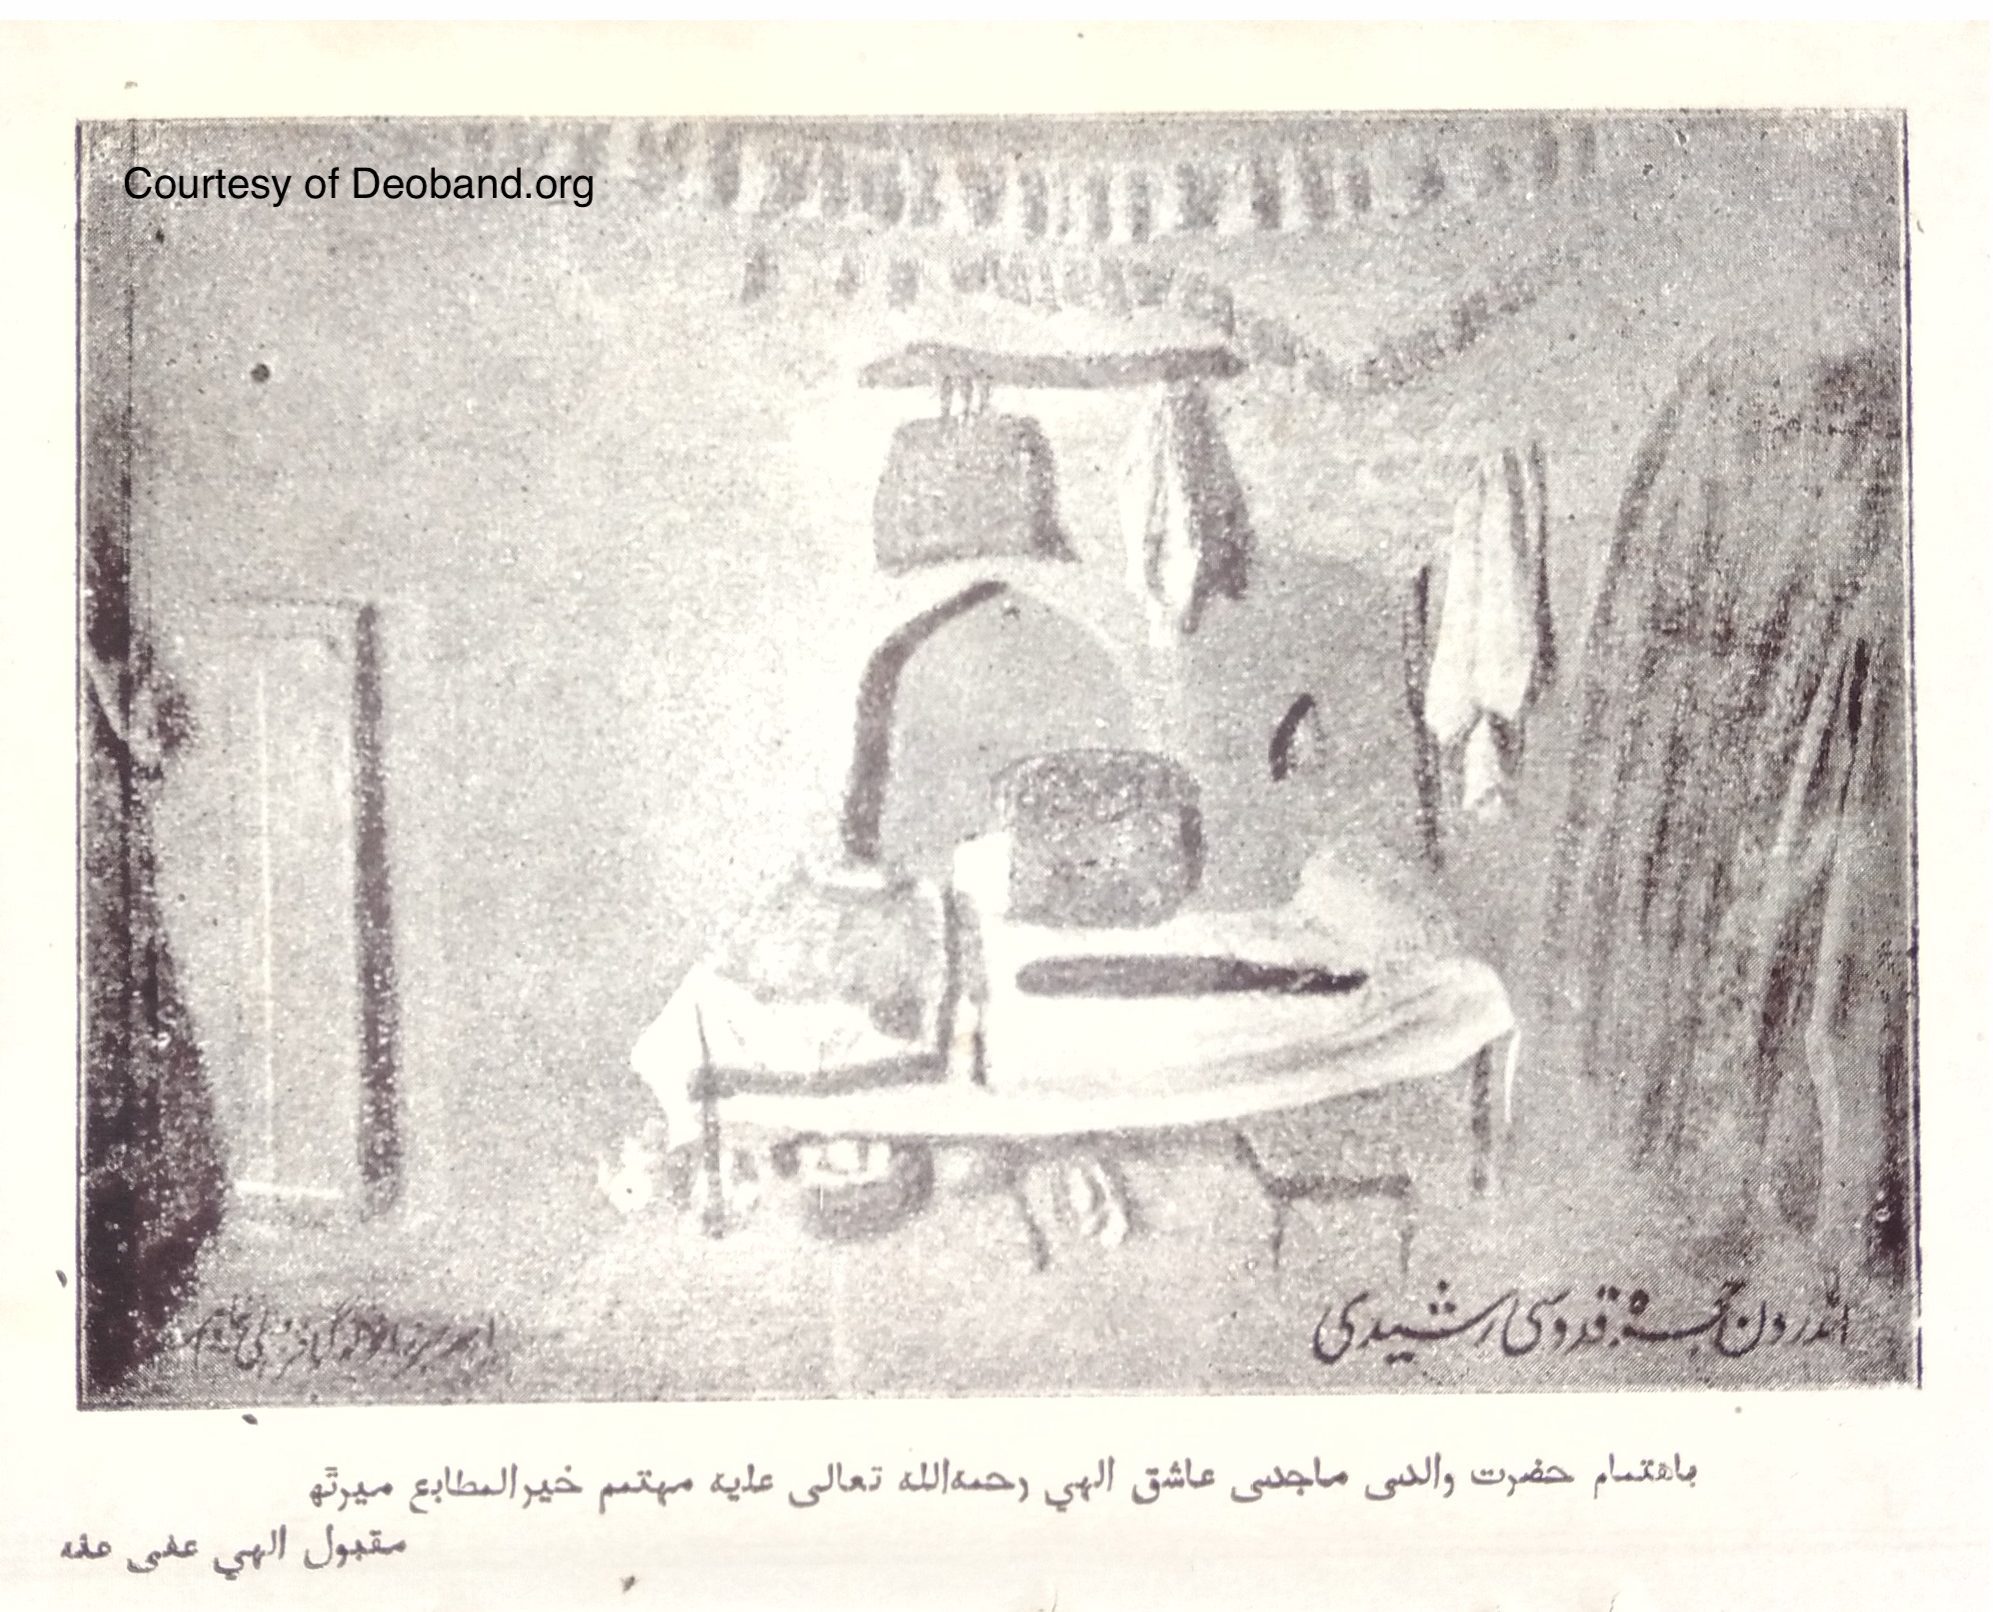 Courtesy of Deoband.org
اندرون حجرہ قدوسی رشیدی
باهتمام حضرت والدی ماجدی عاشق الهي رحمةالله تعالی علیه مهتمم خیرالمطابع میرٹھ
مقبول الهي عفی عنه